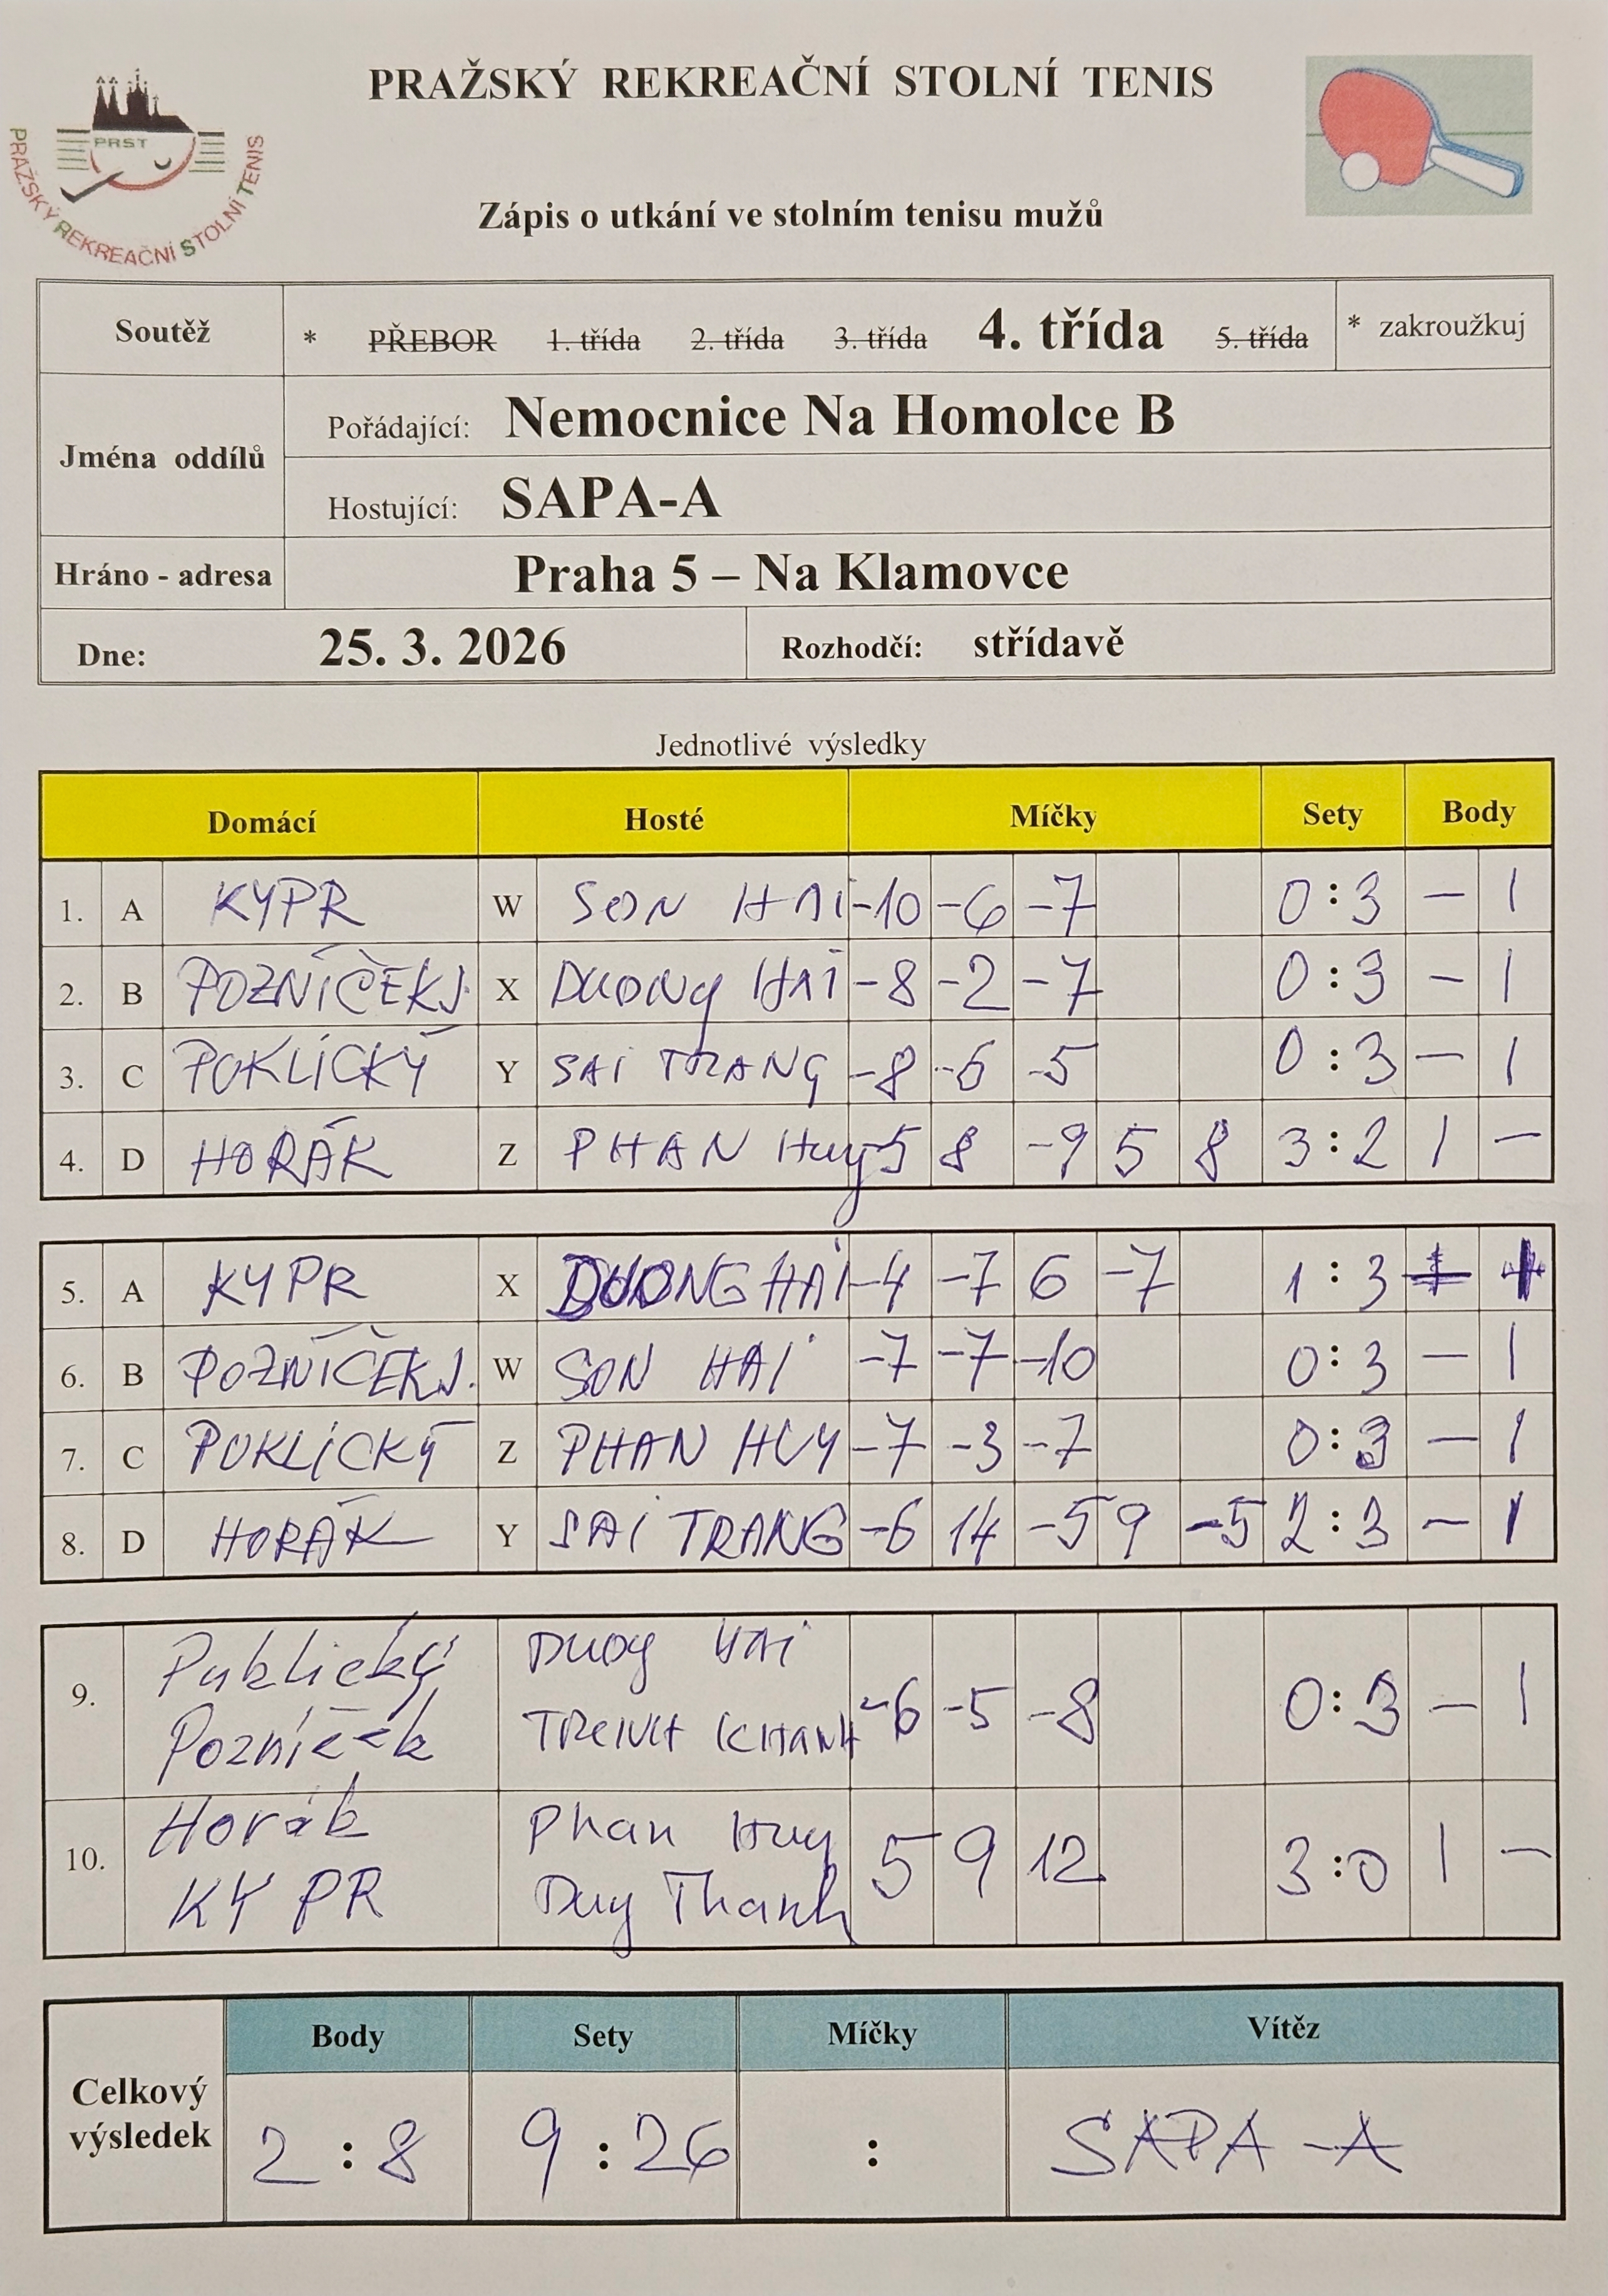 PRAŽSKÝ REKREAČNÍ STOLNÍ TENIS
PRST
PRAŽSKÝ REKREAČNÍ STOLNÍ TENIS
Zápis o utkání ve stolním tenisu mužů
Soutěž * PŘEBOR 1. třída 2. třída 3. třída 4. třída 5. třída * zakroužkuj
Jména oddílů
Pořádající: Nemocnice Na Homolce B
Hostující: SAPA-A
Hráno - adresa Praha 5 – Na Klamovce
Dne: 25. 3. 2026 Rozhodčí: střídavě
Jednotlivé výsledky
Domácí Hosté Míčky Sety Body
1. A KYPR W SON HAI -10 -6 -7 0:3 — 1
2. B POZNÍČEK J. X DUONG HAI -8 -2 -7 0:3 — 1
3. C POKLÍCKÝ Y SAI TRANG -8 -6 -5 0:3 — 1
4. D HORÁK Z PHAN Huy -5 8 -9 5 8 3:2 1 —
5. A KYPR X DUONG HAI -4 -7 6 -7 1:3
6. B POZNÍČEK J. W SON HAI -7 -7 -10 0:3 — 1
7. C POKLÍCKÝ Z PHAN HUY -7 -3 -7 0:3 — 1
8. D HORÁK Y SAI TRANG -6 14 -5 9 -5 2:3 — 1
9. Puklický DUOG HAI
Pozníček KHANH -6 -5 -8 0:3 — 1
10. Horák Phan Huy
KYPR Duy Thanh 5 9 12 3:0 1 —
Celkový výsledek
Body Sety Míčky Vítěz
2:8 9:26 : SAPA-A